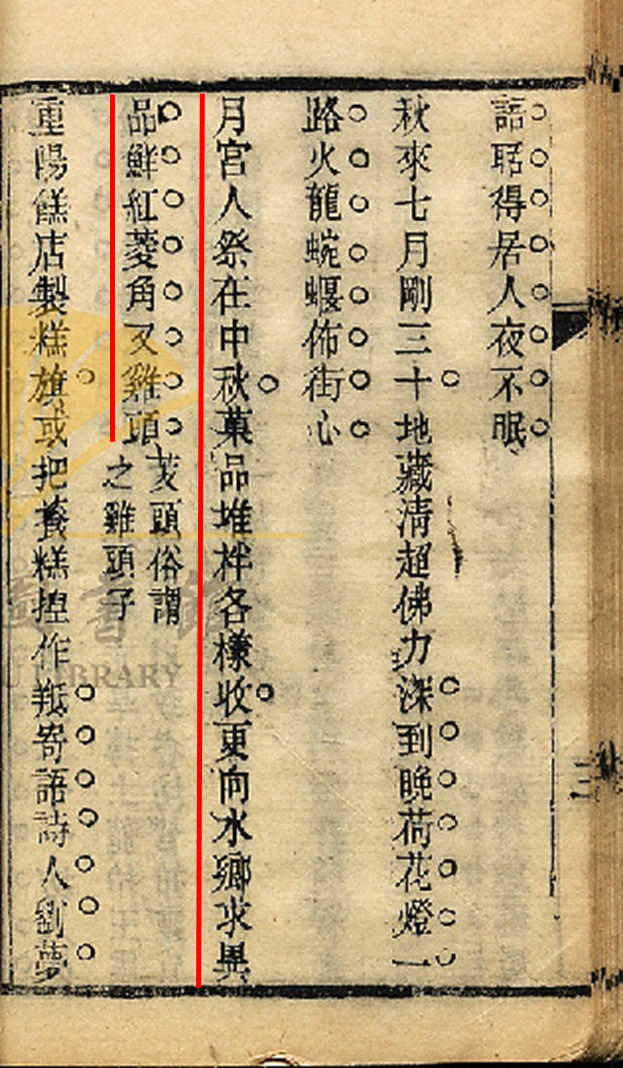 語聒得居人夜不眠
秋來七月剛三十地藏淸超佛力深到晚荷花燈一
路火龍蜿蝘佈街心
月宮人祭在中秋菓品堆柈各樣收更向水鄉求異
品鮮紅菱角又雞頭
芡頭俗謂
之雞頭子
重陽餻店製糕旗或把糕揑作羝寄語詩人劉夢